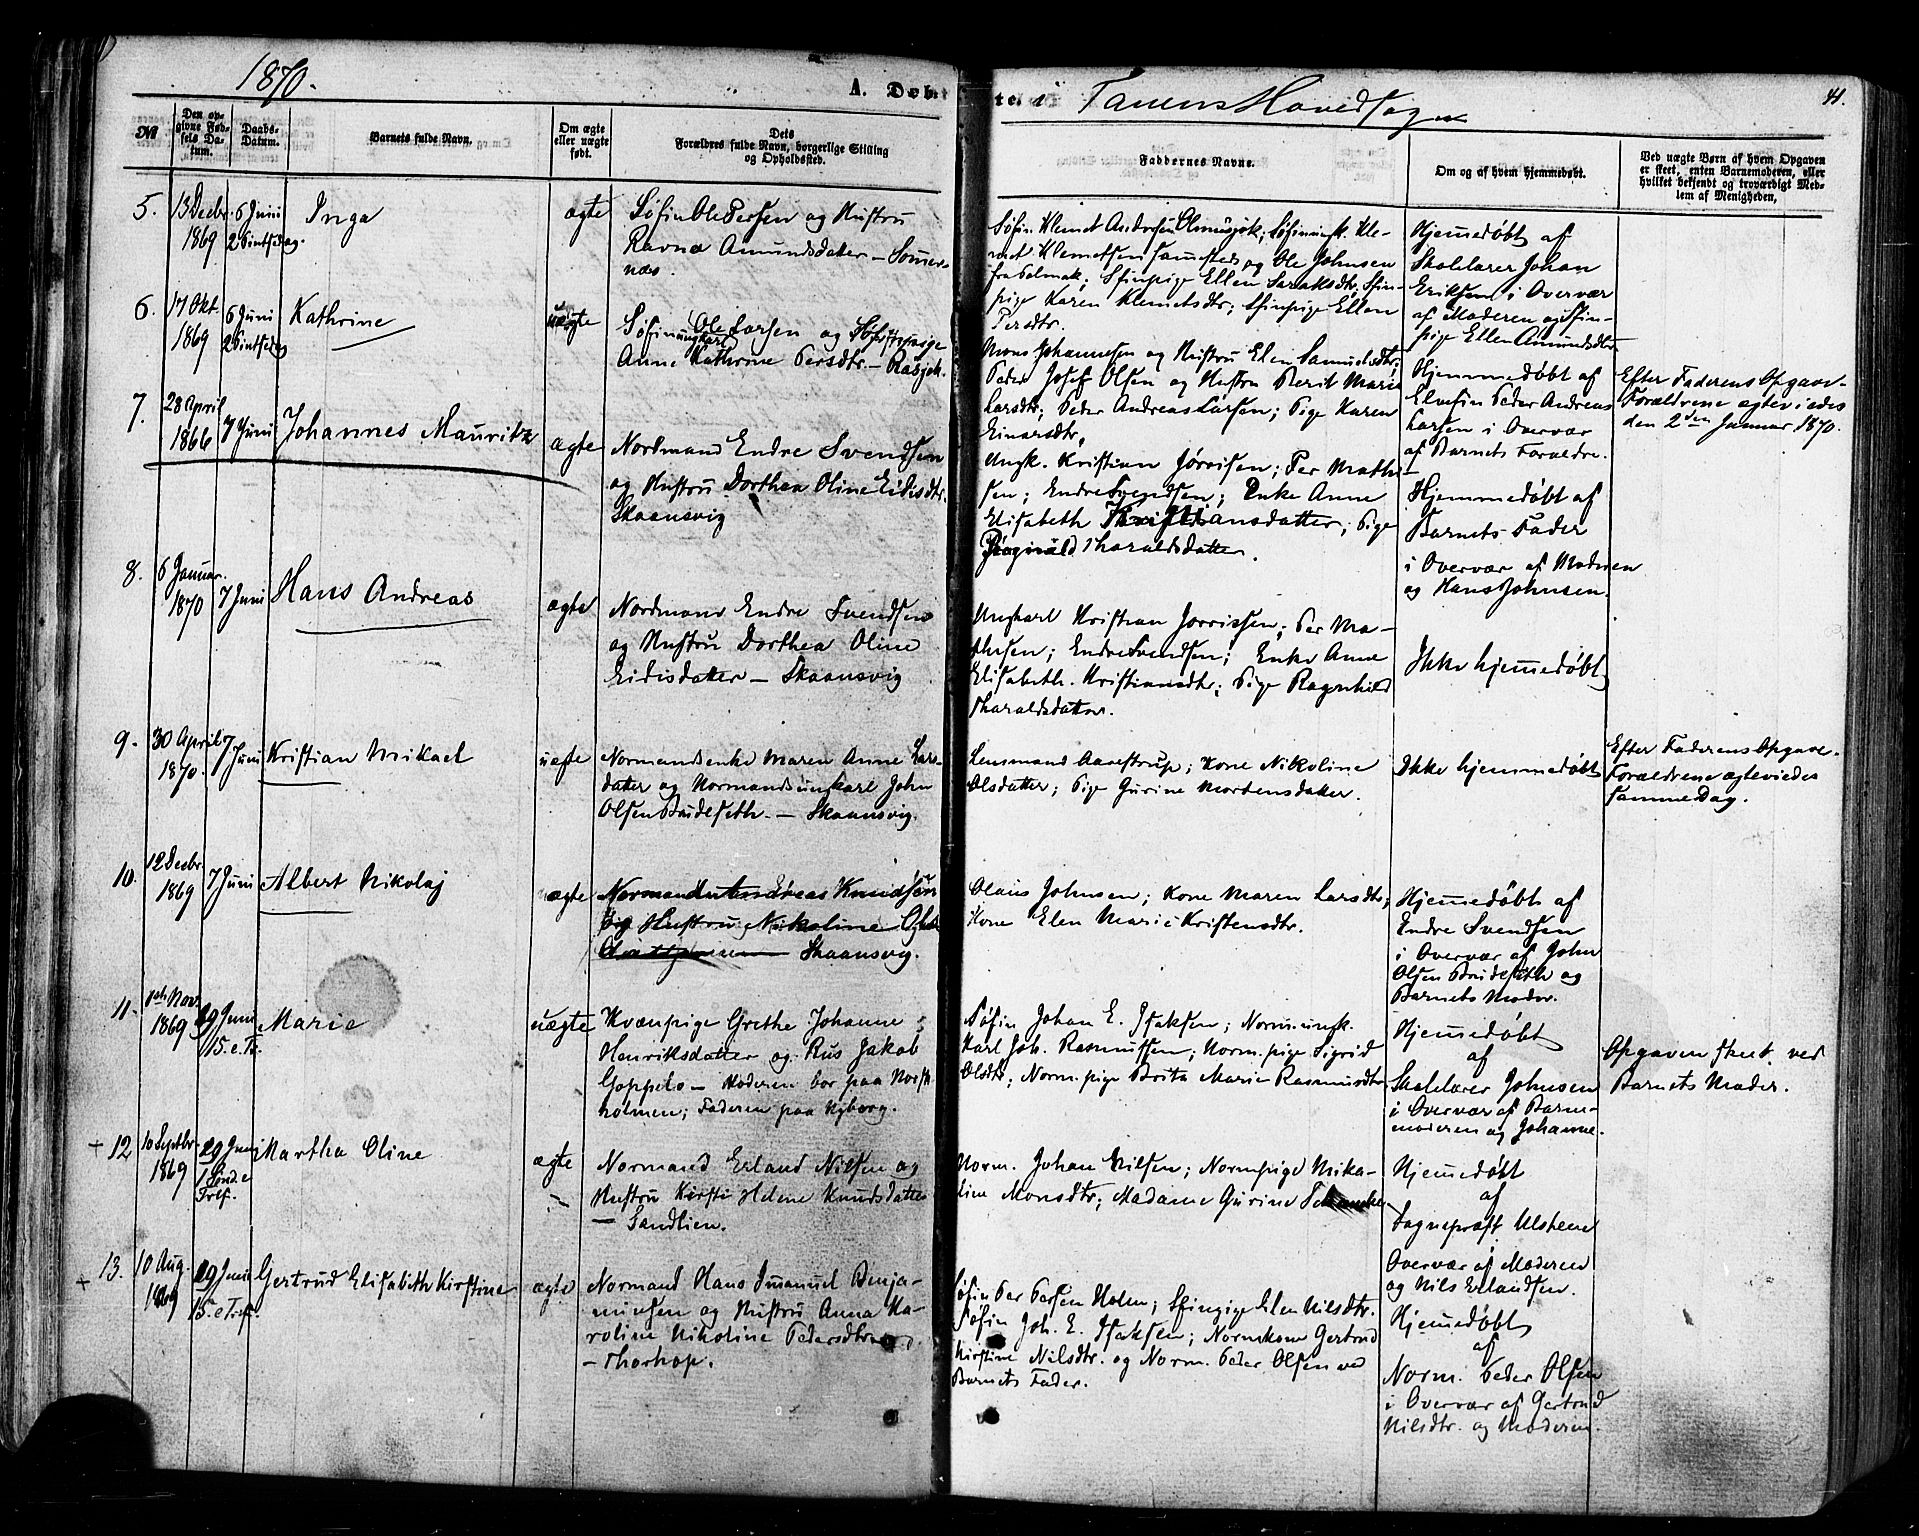 1870.
A. Døb
te i Tanens Hovedsogn
41.
№
Den op-
givne Fød-
sels Da-
tum.
Daabs-
Datum.
Barnets fulde Navn.
Om ægte
eller uægte
født.
Dets
Forældres fulde Navn, borgerlige Stilling
og Opholdssted.
Faddernes Navne.
Om og af hvem hjemmedøbt.
Ved uægte Børn af hvem Opgaven
er skeet, enten Barnemoderen, eller
hvilket bekjendt og troværdigt Med-
lem af Menigheden.
5.
13 Decbr.
1869
6 Juni
2 Pintsedag.
Inga
ægte
Søfin Ole Persen og Hustru
Ravna Amundsdatter – Somer-
næs.
Søfin Klemet Andersen Olmusjok; Søfinungk. Kle-
met Klemetsen sammesteds og Ole Johnsen
fra Polmak; Sfinpige Ellen Saraksdtr; Sfin-
pige Karen Klemetsdtr; Sfinpige Ellen
Persdtr.
Hjemedøbt af
Skolelærer Johan
Eriksen i Overvær
af Moderen og Sfin-
pige Ellen Amundsdtr
6.
17 Okt.
1869
6 Juni
2 Pintsedag
Kathrine
uægte
Søfinungkarl Ole Larsen og Søfinpige
Anne Kathrine Persdtr. – Rasjok.
Mons Johannesen og Hustru Elen Samuelsdtr;
Peder Josef Olsen og Hustru Berit Marie
Larsdtr; Peder Andreas Larsen; Pige Karen
Einarsdtr.
Hjemmedøbt af
Elvefin Peder Andreas
Larsen i Overvær
af Barnets Forældre.
Efter Faderens Opgave.
Forældrene ægteviedes
den 2den Januar 1870.
7.
28 April
1866
7 Juni
Johannes Mauritz
ægte
Nordmand Endre Svendsen
og Hustru Dorthea Oline Eidisdtr.
Skaansvig
Ungk. Kristian Jørrisen; Per Math-
sen; Endre Svendsen; Enke Anne
Elisabeth Kristiansdatter; Pige
Ragnild Tharaldsdatter.
Hjemmedøbt af
Barnets Fader
i Overvær af Moderen
og Hans Johnsen.
8.
6 Januar.
1870
7 Juni
Hans Andreas
ægte
Nordmand Endre Svendsen
og Hustru Dorthea Oline
Eidisdatter – Skaansvig
Ungkarl Kristian Jørrissen; Per Ma-
thisen; Endre Svendsen; Enke Anne
Elisabeth Kristiansdtr; Pige Ragnhild
Tharaldsdatter.
Ikke hjemedøbt
9.
30 April
1870.
7 Juni
Kristian Mikael
uægte
Normandsenke Maren Anne Lars-
datter og Normandsungkarl John
Olsen Budeseth. – Skaansvig.
Lensmand Aarstrup; Kone Nikoline
Olsdatter; Pige Gurine Mortensdatter.
Ikke hjemmedøbt
Efter Faderens Opgave.
Forældrene ægteviedes
samme Dag.
10.
12 Decbr.
1869
7 Juni
Albert Nikolaj
ægte
Normand Andreas Knudsen
og Hustru Nikoline
Skaansvig.
Olaus Johnsen; Kone Maren Larsdtr;
Kone Elen Marie Kristensdtr.
Hjemedøbt af
Endre Svendsen
i Overvær af John
Olsen Budeseth og
Barnets Moder.
11.
Nov.
1869
29 Juni
15. e. Tr.
Marie
uægte
Kvænpige Grethe Johanne
Henriksdatter og Rus Jakob
Goppelo – Moderen bor paa Norsk
holmen; Faderen paa Nyborg.
Søfin Johan E. Isaksen; Norm. ungk.
Karl Joh. Rasmussen; Norm. pige Sigrid
Olsdtr; Norm. pige Brita Marie Rasmusdtr
Hjemedøbt
af
Skolelærer Johnsen
i Overvær af Barne-
moderen og Johanne.
Opgaven skeet ved
Barnets Moder.
+ 12
10 Septbr.
1869
29 Juni
1 Sønd. e
Tref.
Martha Oline
ægte
Normand Erland Nilsen og
Hustru Kirsti Helene Knudsdatter
– Sandlien.
Norm. Johan Nilsen; Normpige Mika-
line Monsdtr; Madame Gurine Schancke
Hjemedøbt
af
Sognepræst Ulstene
Overvær af Moderen
og Nils Erlandsen.
+ 13.
10 Aug.
1869
29 Juni
15. e Tref.
Gertrud Elisabeth Kirstine
ægte
Normand Hans Imanuel Benja-
minsen og Hustru Anna Ka-
roline Nikoline Pedersdtr
– Thorhop.
Søfin Per Persen Holm; Sfinpige Elen Nilsdtr.
Søfin Joh. E. Isaksen; Normkone Gertrud
Kirstine Nilsdtr. og Norm. Peder Olsen ved
Barnets Fader.
Hjemedøbt
af
Norm. Peder Olsen
i Overvær af Gertrud
Nilsdtr. og Moderen.